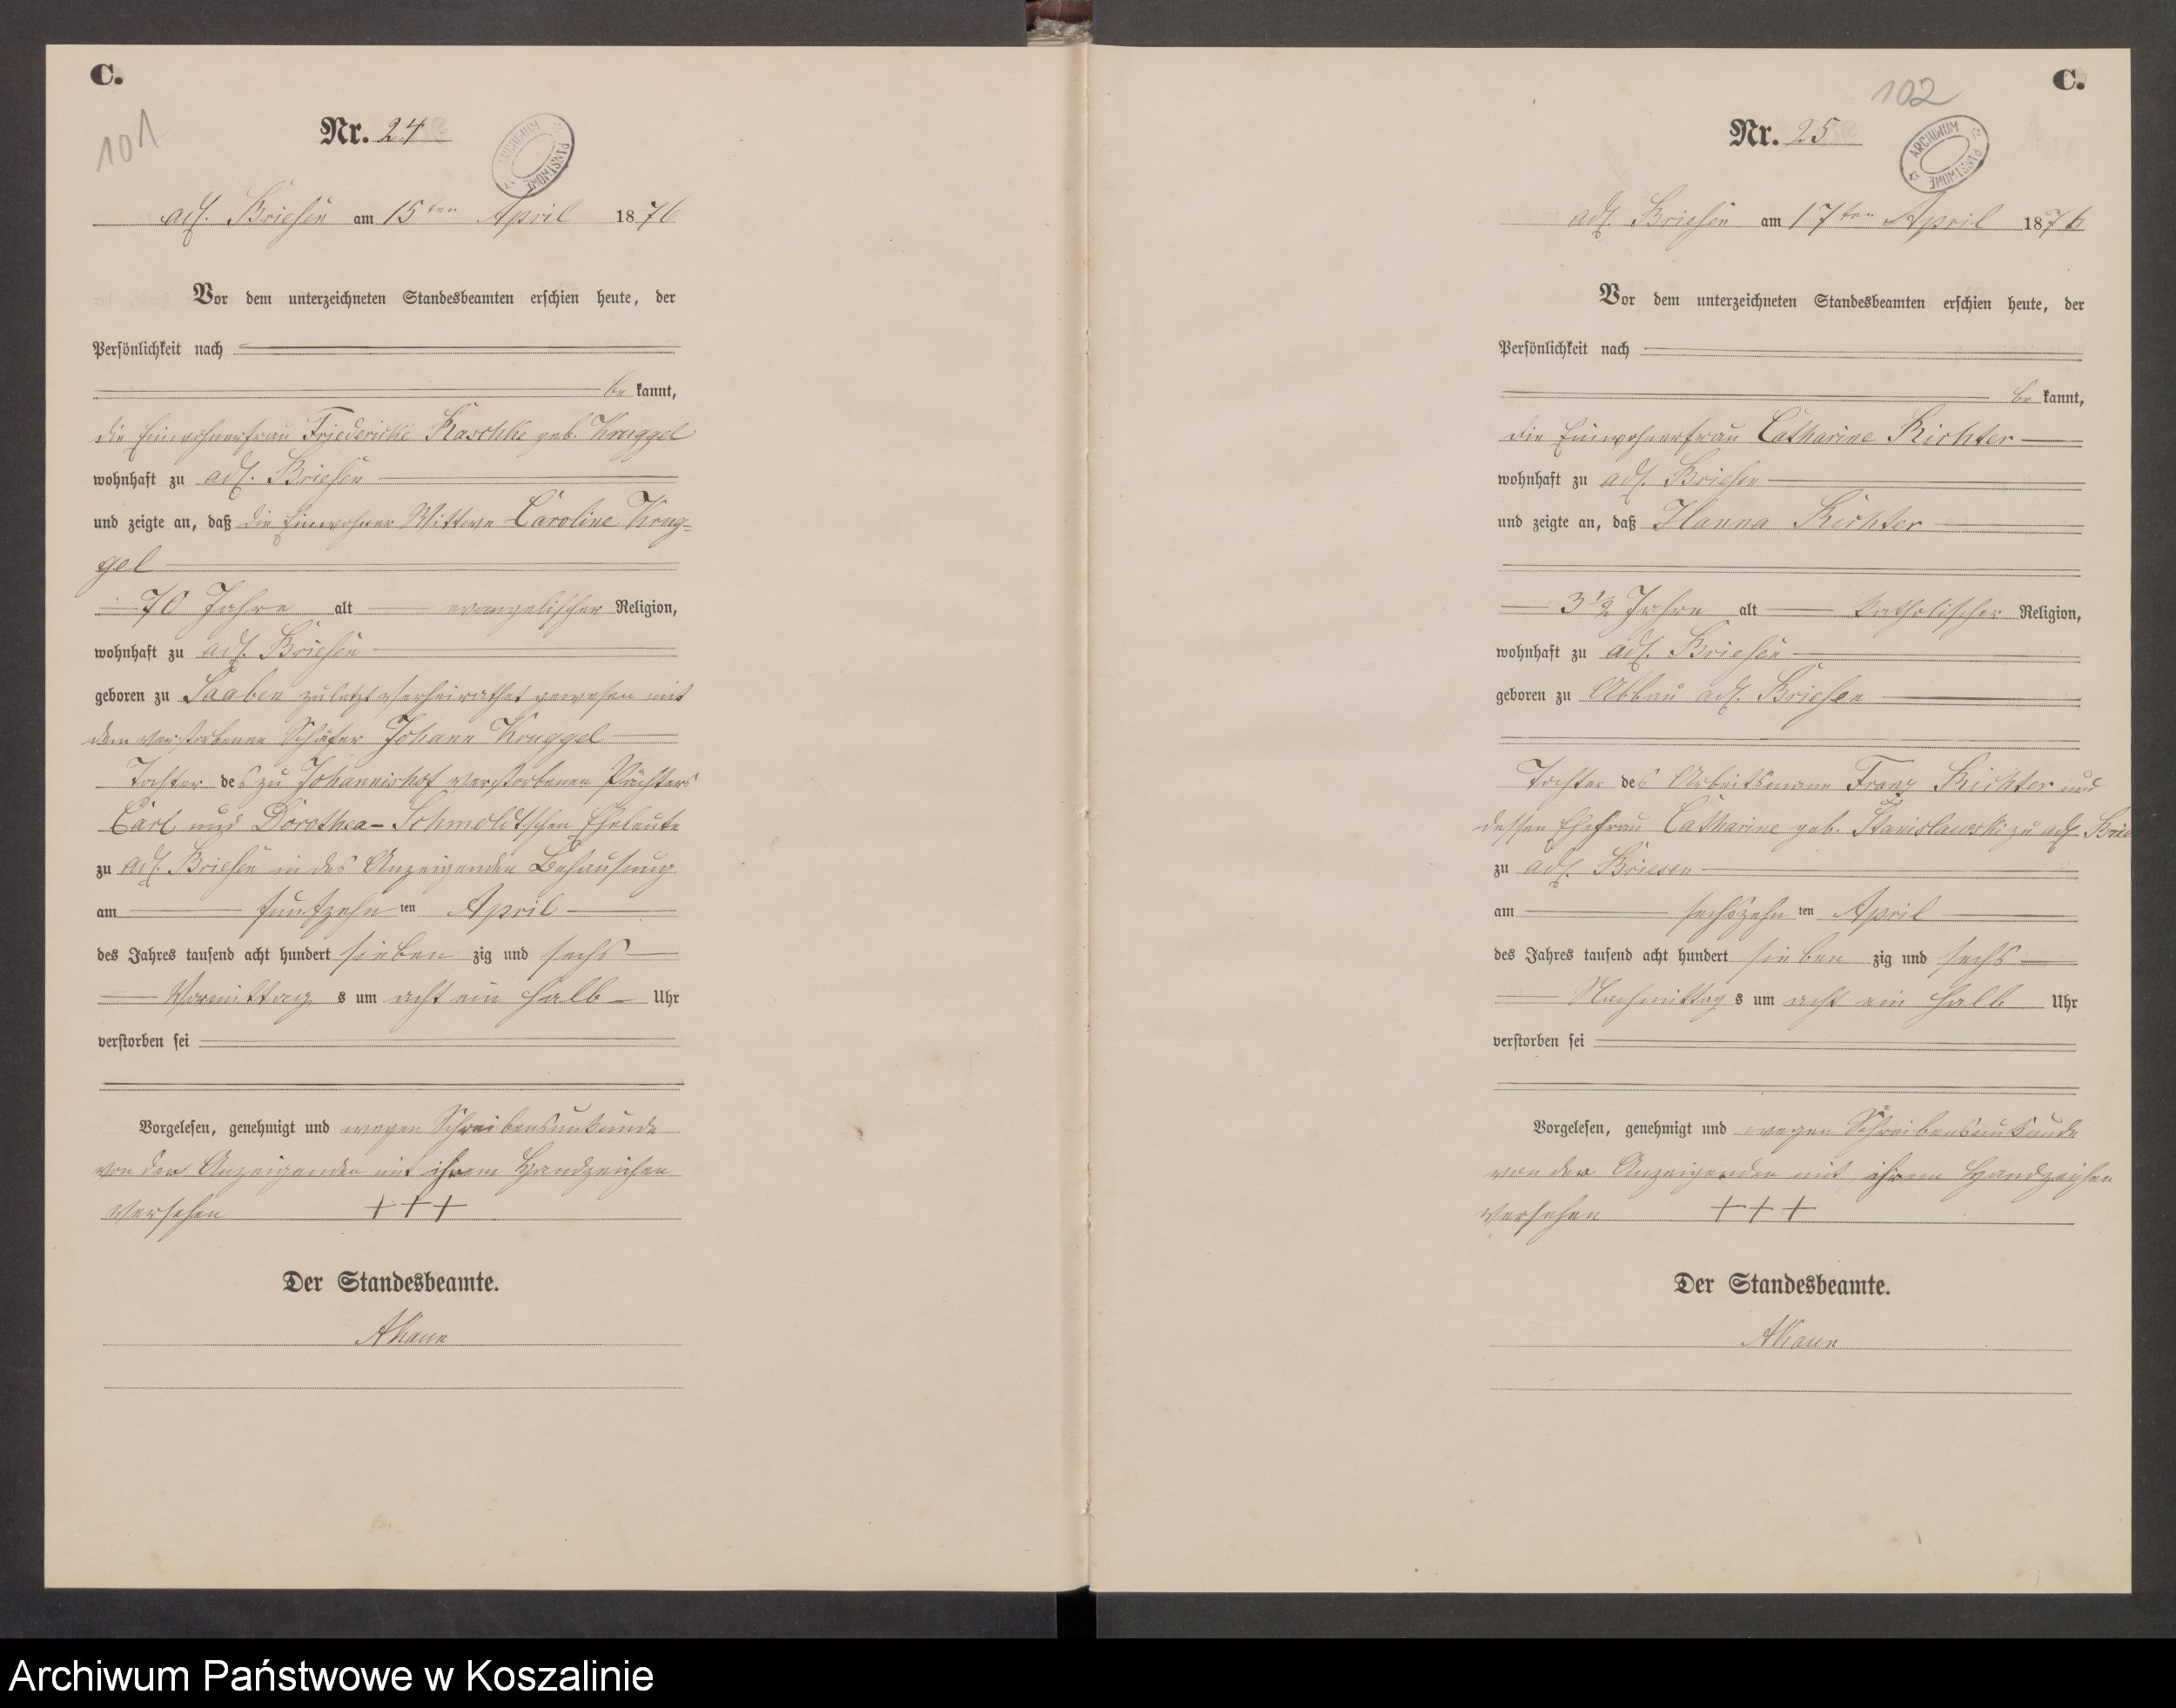 C.
101
Nr. 24
ARCHIWUM PAŃSTWOWE
adl. Briesen am 15ten April 1876
Vor dem unterzeichneten Standesbeamten erschien heute, der
Persönlichkeit nach
be kannt,
die Einwohnerfrau Friedericke Raschke geb. Kruggel
wohnhaft zu adl. Briesen
und zeigte an, daß die Einwohner Wittwe Caroline Krug-
gel
70 Jahre alt evangelischer Religion,
wohnhaft zu adl. Briesen
geboren zu Saaben zuletzt verheirathet gewesen mit
dem verstorbenen Schäfer Johann Kruggel
Tochter des zu Johannishof verstorbenen Pächters
Carl und Dorothea- Schmoldtschen Eheleute
zu adl. Briesen in des Anzeigenden Behausung
am funfzehn ten April
des Jahres tausend acht hundert sieben zig und sechs
Vormittag s um acht ein halb Uhr
verstorben sei
Vorgelesen, genehmigt und wegen Schreibensunkunde
von der Anzeigenden mit ihrem Handzeichen
versehen +++
Der Standesbeamte.
C.
102
Nr. 25
ARCHIWUM PAŃSTWOWE
adl. Briesen am 17ten April 1876
Vor dem unterzeichneten Standesbeamten erschien heute, der
Persönlichkeit nach
be kannt,
die Einwohnerfrau Catharine Richter
wohnhaft zu adl. Briesen
und zeigte an, daß Hanna Richter
3 1/2 Jahre alt katholischer Religion,
wohnhaft zu adl. Briesen
geboren zu Abbau adl. Briesen
Tochter des Arbeitsmann Franz Richter und
dessen Ehefrau Catharine geb. Stanislawski zu adl. Brie
zu adl. Briesen
am sechszehn ten April
des Jahres tausend acht hundert sieben zig und sechs
Nachmittag s um acht ein halb Uhr
verstorben sei
Vorgelesen, genehmigt und wegen Schreibensunkunde
von der Anzeigenden mit ihrem Handzeichen
versehen +++
Der Standesbeamte.
Archiwum Państwowe w Koszalinie